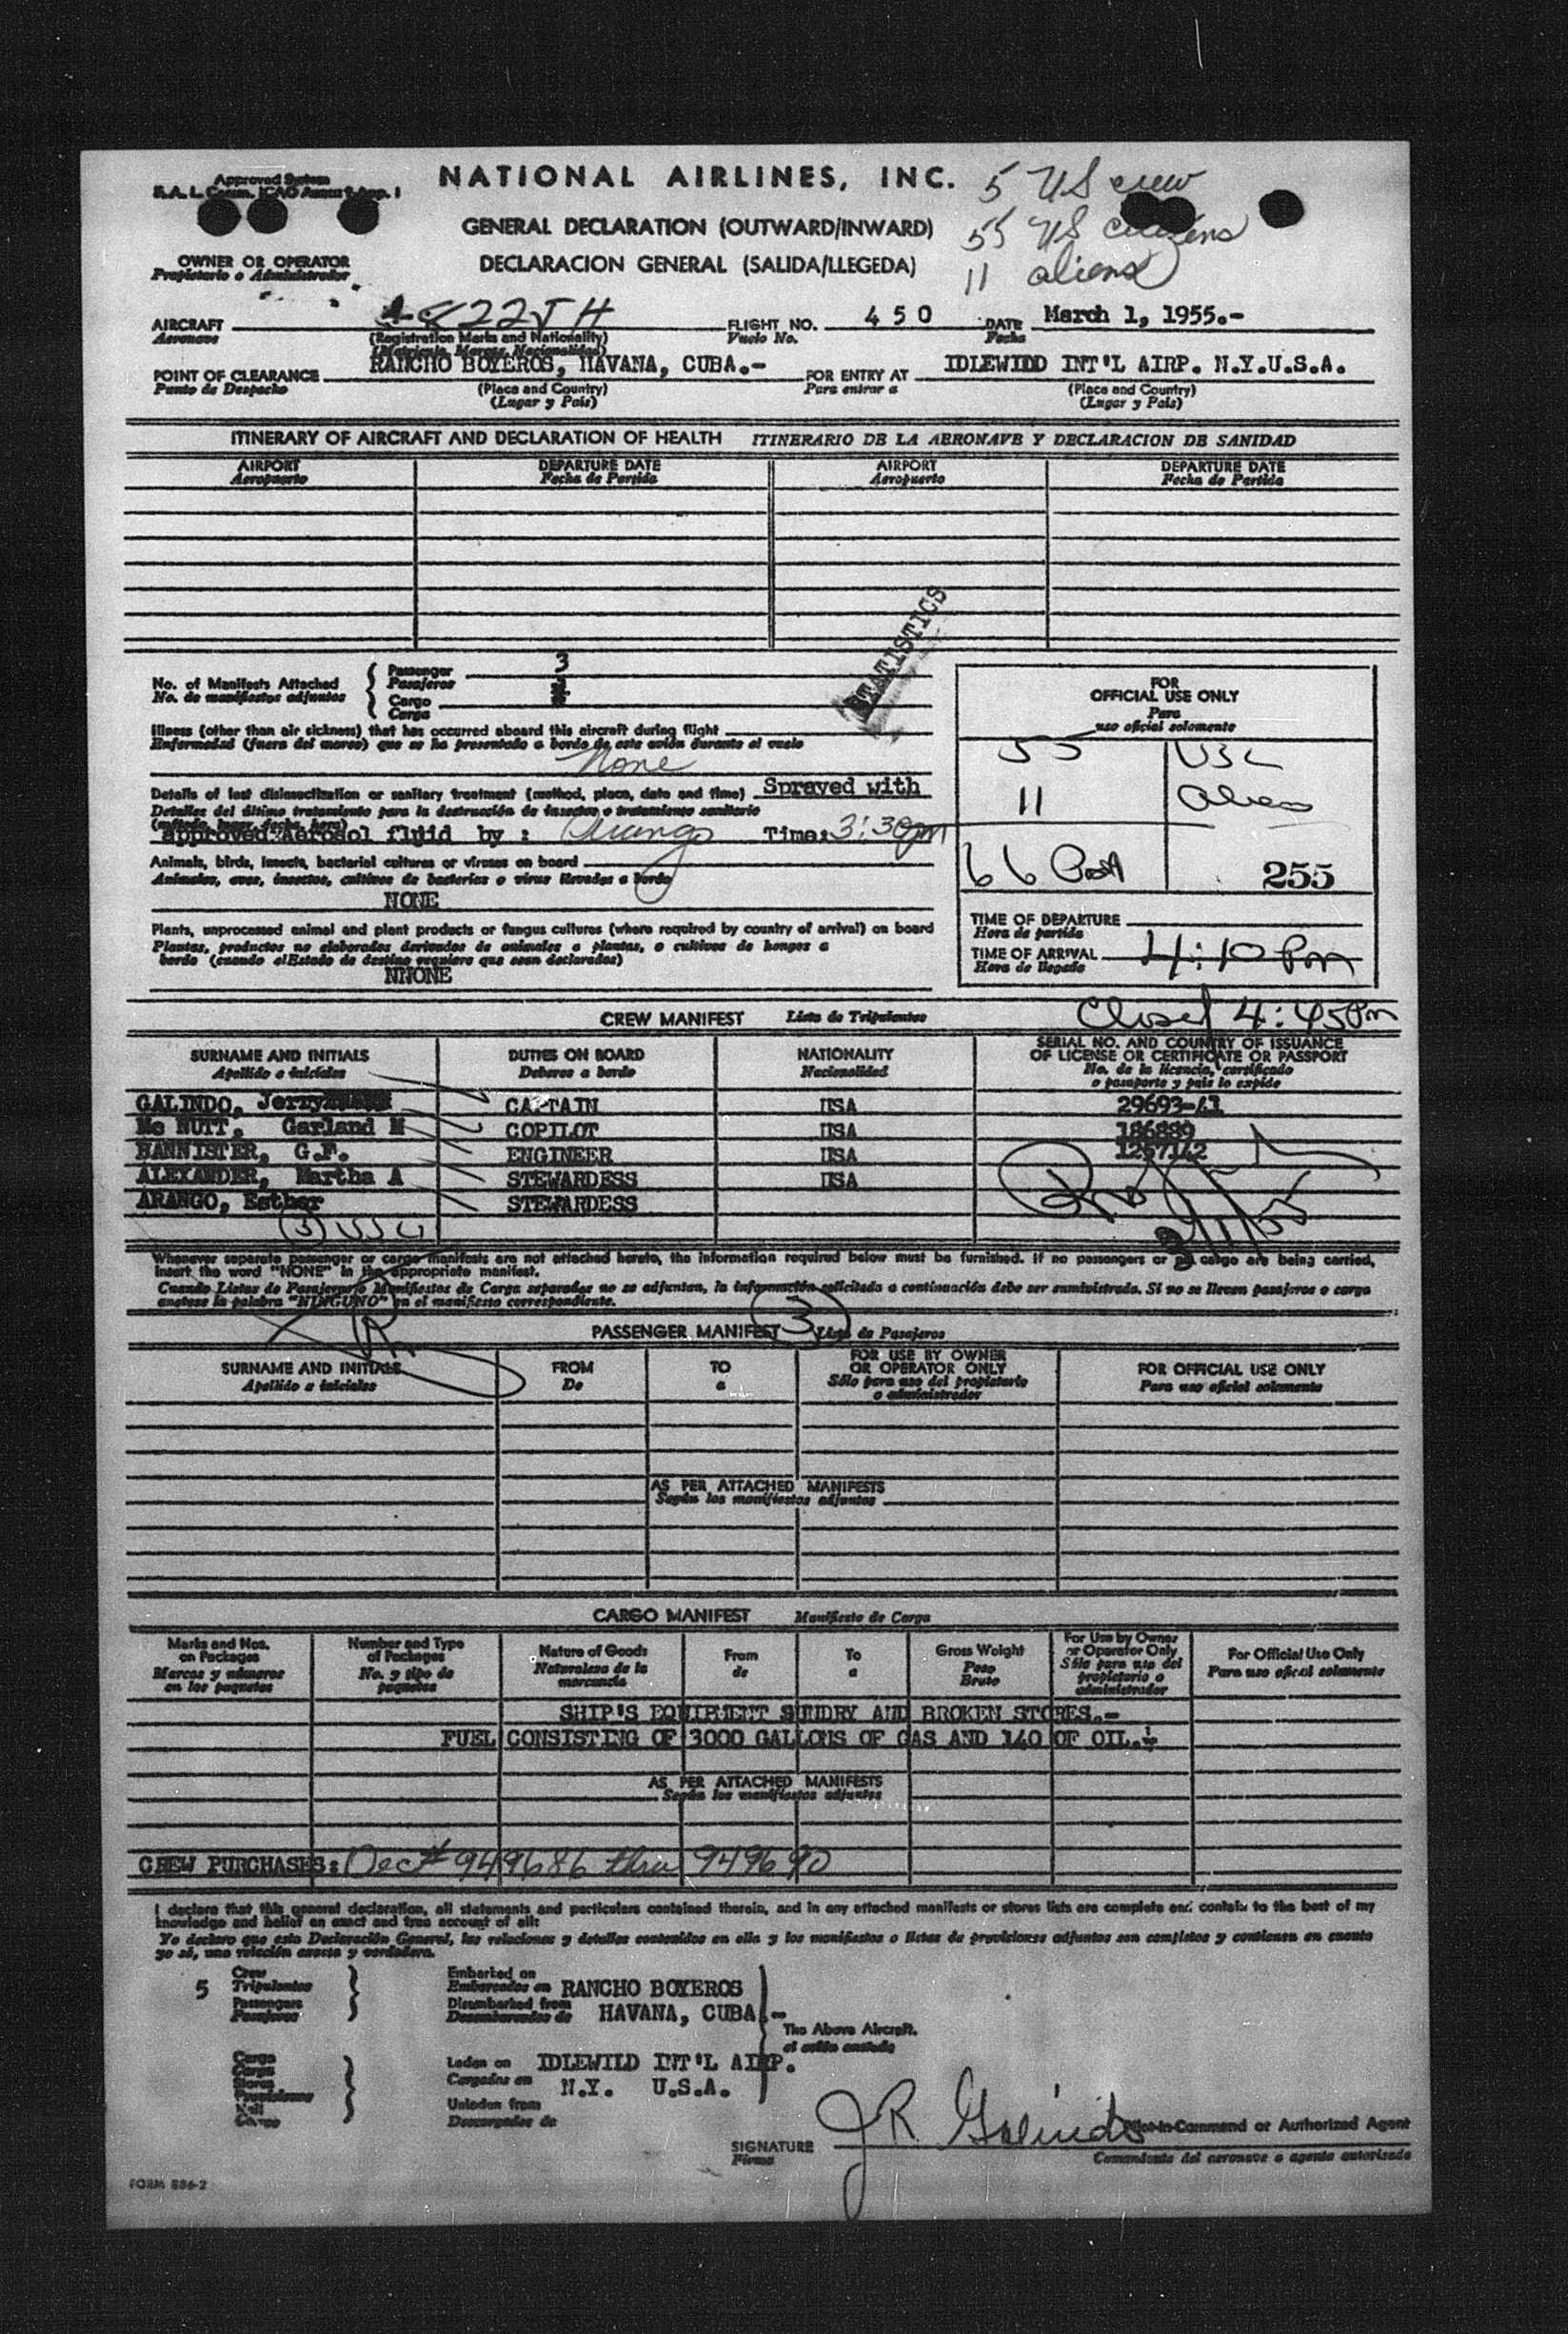 Approved System
NATIONAL AIRLINES, INC.
5 US crew
GENERAL DECLARATION (OUTWARD/INWARD)
55 US citizens
DECLARACION GENERAL (SALIDA/LLEGEDA)
11 aliens
OWNER OR OPERATOR
Propietario o Administrador
AIRCRAFT
Aeronave
(Registration Marks and Nationality)
FLIGHT NO. 450
Vuelo No.
DATE March 1, 1955.-
Fecha
POINT OF CLEARANCE RANCHO BOYEROS, HAVANA, CUBA.-
Punto de Despacho
(Place and Country)
(Lugar y Pais)
FOR ENTRY AT IDLEWIDD INT'L AIRP. N.Y.U.S.A.
Para entrar a
(Place and Country)
(Lugar y Pais)
ITINERARY OF AIRCRAFT AND DECLARATION OF HEALTH ITINERARIO DE LA AERONAVE Y DECLARACION DE SANIDAD
AIRPORT DEPARTURE DATE AIRPORT DEPARTURE DATE
Aeropuerto Fecha de Partida Aeropuerto Fecha de Partida
STATISTICS
No. of Manifests Attached
No. de manifiestos adjuntos
Passenger 3
Pasajeros
Cargo
Carga
Illness (other than air sickness) that has occurred aboard this aircraft during flight
Enfermedad (fuera del mareo) que se ha presentado a bordo de este avión durante el vuelo
None
Details of last disinsectization or sanitary treatment (method, place, date and time) Sprayed with
Detalles del último tratamiento para la destrucción de insectos o tratamiento sanitario
approved Aerosol fluid by: Arango Time: 3:30pm
Animals, birds, insects, bacterial cultures or viruses on board
Animales, aves, insectos, cultivos de bacterias o virus llevados a bordo
NONE
Plants, unprocessed animal and plant products or fungus cultures (where required by country of arrival) on board
Plantas, productos no elaborados derivados de animales o plantas, o cultivos de hongos a
bordo (cuando el Estado de destino requiere que sean declarados)
NNONE
FOR
OFFICIAL USE ONLY
Para
uso oficial solamente
55 USC
11 alien
66 255
TIME OF DEPARTURE
Hora de partida
TIME OF ARRIVAL 4:10 Pm
Hora de llegada
Closed 4:45Pm
CREW MANIFEST Lista de Tripulantes
SURNAME AND INITIALS
Apellido e iniciales
DUTIES ON BOARD
Deberes a bordo
NATIONALITY
Nacionalidad
SERIAL NO. AND COUNTRY OF ISSUANCE
OF LICENSE OR CERTIFICATE OR PASSPORT
No. de la licencia, certificado
o pasaporte y pais lo expide
GALINDO, Jerry CAPTAIN USA 29693-41
Mc NUTT, Garland M COPILOT USA 186889
BANNISTER, G.F. ENGINEER USA 1257142
ALEXANDER, Martha A STEWARDESS USA
ARANGO, Esther STEWARDESS
Whenever separate passenger or cargo manifests are not attached hereto, the information required below must be furnished. If no passengers or no cargo are being carried,
insert the word "NONE" in the appropriate manifest.
Cuando Listas de Pasajeros o Manifiestos de Carga separados no se adjuntan, la información solicitada a continuación debe ser suministrada. Si no se llevan pasajeros o carga
anotese la palabra "NINGUNO" en el manifiesto correspondiente.
PASSENGER MANIFEST 3 Lista de Pasajeros
SURNAME AND INITIALS
Apellido e iniciales
FROM
De
TO
a
FOR USE BY OWNER
OR OPERATOR ONLY
Sólo para uso del propietario
o administrador
FOR OFFICIAL USE ONLY
Para uso oficial solamente
AS PER ATTACHED MANIFESTS
Según los manifiestos adjuntos
CARGO MANIFEST Manifiesto de Carga
Marks and Nos.
on Packages
Marcas y números
en los paquetes
Number and Type
of Packages
No. y tipo de
paquetes
Nature of Goods
Naturaleza de la
mercancía
From
de
To
a
Gross Weight
Peso
Bruto
For Use by Owner
or Operator Only
Sólo para uso del
propietario o
administrador
For Official Use Only
Para uso oficial solamente
SHIP'S EQUIPMENT SUNDRY AND BROKEN STORES.-
FUEL CONSISTING OF 3000 GALLONS OF GAS AND 140 OF OIL.-
AS PER ATTACHED MANIFESTS
Según los manifiestos adjuntos
CREW PURCHASES: Dec# 949686 thru 949690
I declare that this general declaration, all statements and particulars contained therein, and in any attached manifests or stores lists are complete and contain to the best of my
knowledge and belief an exact and true account of all:
Yo declaro que esta Declaración General, las relaciones y detalles contenidos en ella y los manifiestos o listas de provisiones adjuntos son completos y contienen en cuanto
yo sé, una relación exacta y verdadera.
5 Crew
Tripulantes
Passengers
Pasajeros
Embarked on
Embarcados en RANCHO BOYEROS
Disembarked from
Desembarcados de HAVANA, CUBA.-
The Above Aircraft.
el avión anotado
Cargo
Carga
Stores
Provisiones
Mail
Correo
Laden on IDLEWILD INT'L AIRP.
Cargados en N.Y. U.S.A.
Unladen from
Descargados de
SIGNATURE JR Galindo
Firma
Pilot-in-Command or Authorized Agent
Comandante del aeronave o agente autorizado
FORM 886-2